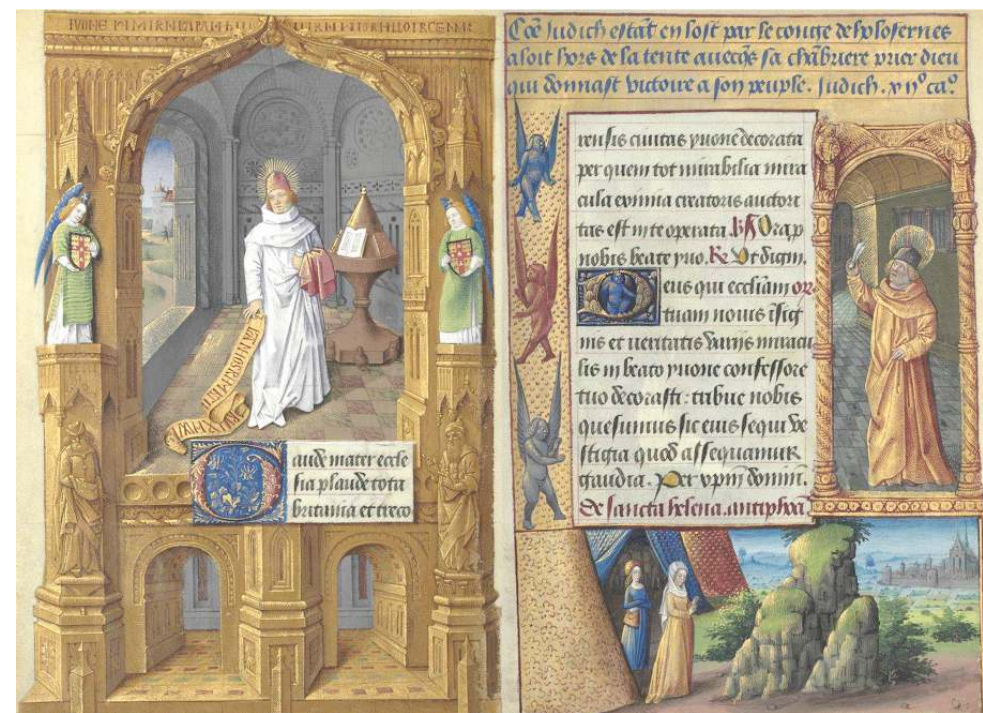 Gaude mater eccle
sia plaude tota
britania et treco
Cõe Judich estãt en lost par le congie de holofernes
aloit hors de la tente auecqs sa chãbriere prier dieu
qui donnast victoire a son peuple. Judich. xiiº caº.
rensis ciuitas yuone decorata
per quem tot mirabilia mira
cula eximia creatoris auctori
tas est in te operata. ℣ Ora p
nobis beate yuo. ℟ Vt digni.
Deus qui eccliam or
tuam nouis ĩsig
nis et ueritatis varijs miracu
lis in beato yuone confessore
tuo decorasti: tribue nobis
quesumus sic eius sequi ve
stigia quod assequamur
gaudia. Per xpm domin.
De sancta helena. antiphoã